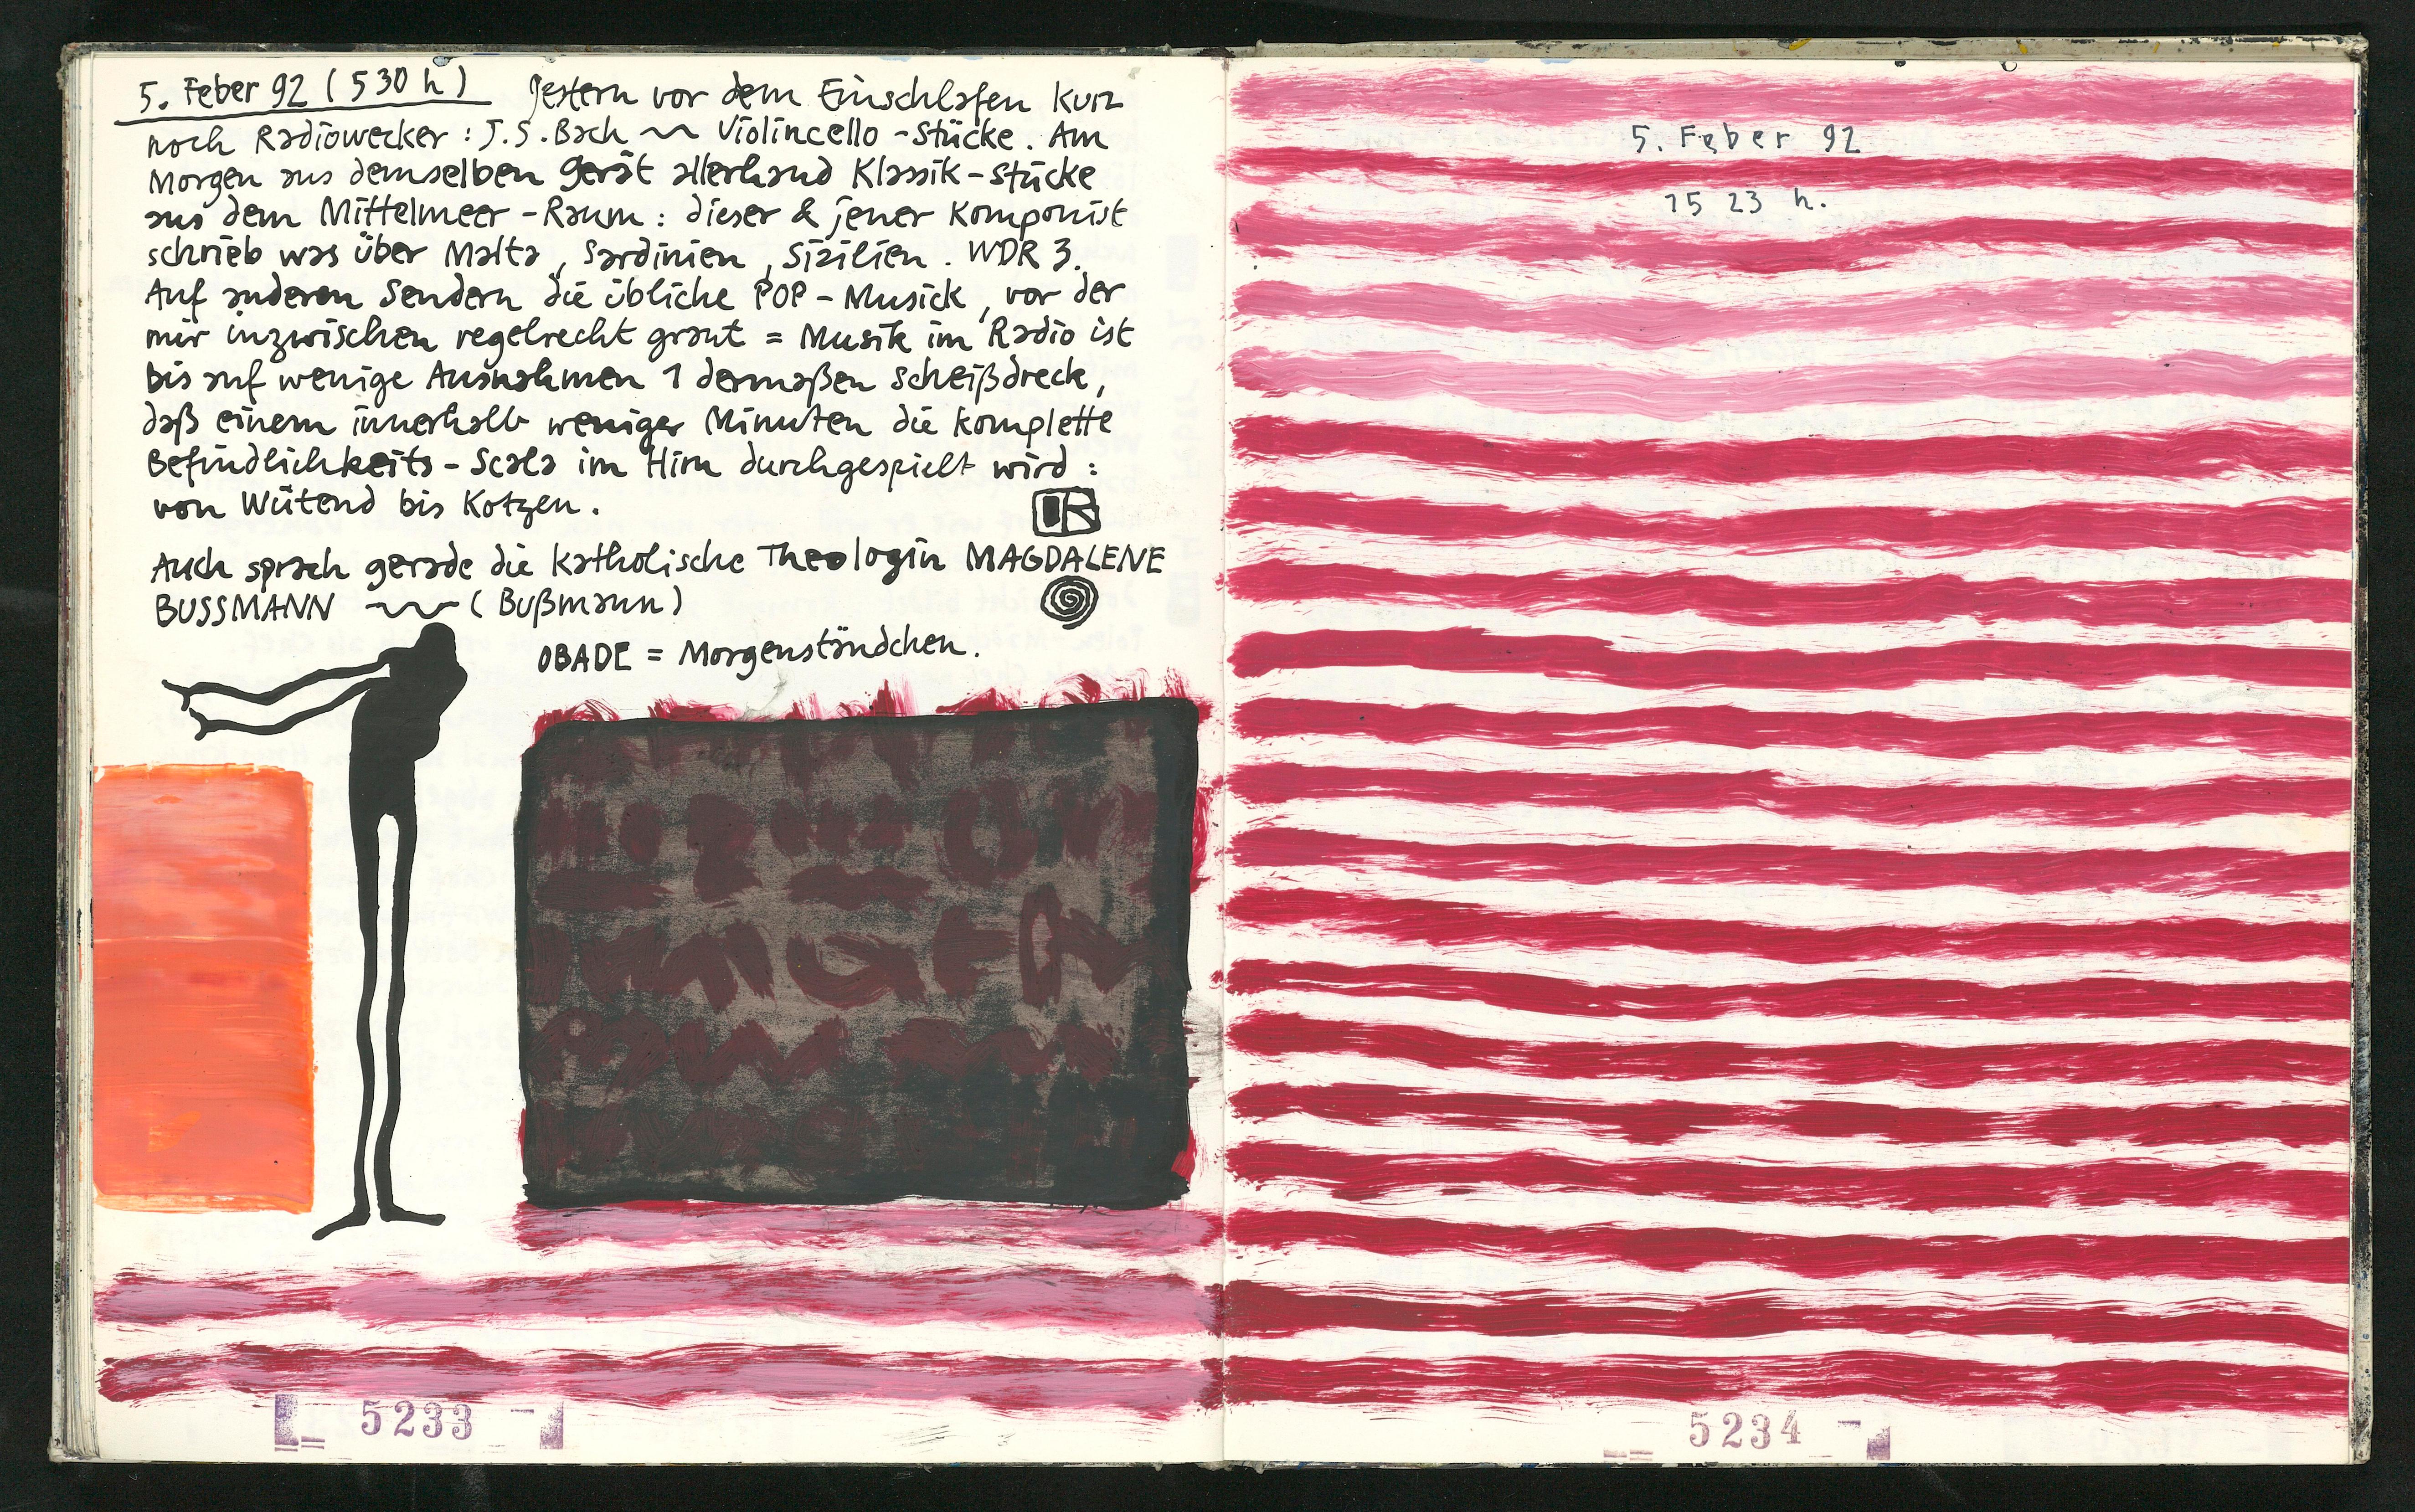 5. Feber 92 (530 h) Gestern vor dem Einschlafen kurz
noch Radiowecker: J.S. Bach ~ Violincello-Stücke. Am
Morgen aus demselben Gerät allerhand Klassik-Stücke
aus dem Mittelmeer-Raum: dieser & jener Komponist
schrieb was über Malta, Sardinien, Sizilien. WDR 3.
Auf anderen Sendern die übliche POP-Musick, vor der
mir inzwischen regelrecht graut = Musik im Radio ist
bis auf wenige Ausnahmen 1 dermaßen Scheißdreck,
daß einem innerhalb weniger Minuten die komplette
Befindlichkeits-Scala im Hirn durchgespielt wird:
von Wütend bis Kotzen.
Auch sprach gerade die katholische Theologin MAGDALENE
BUSSMANN ~ (Bußmann)
OBADE = Morgenständchen.
5233
5. Feber 92
15 23 h.
5234